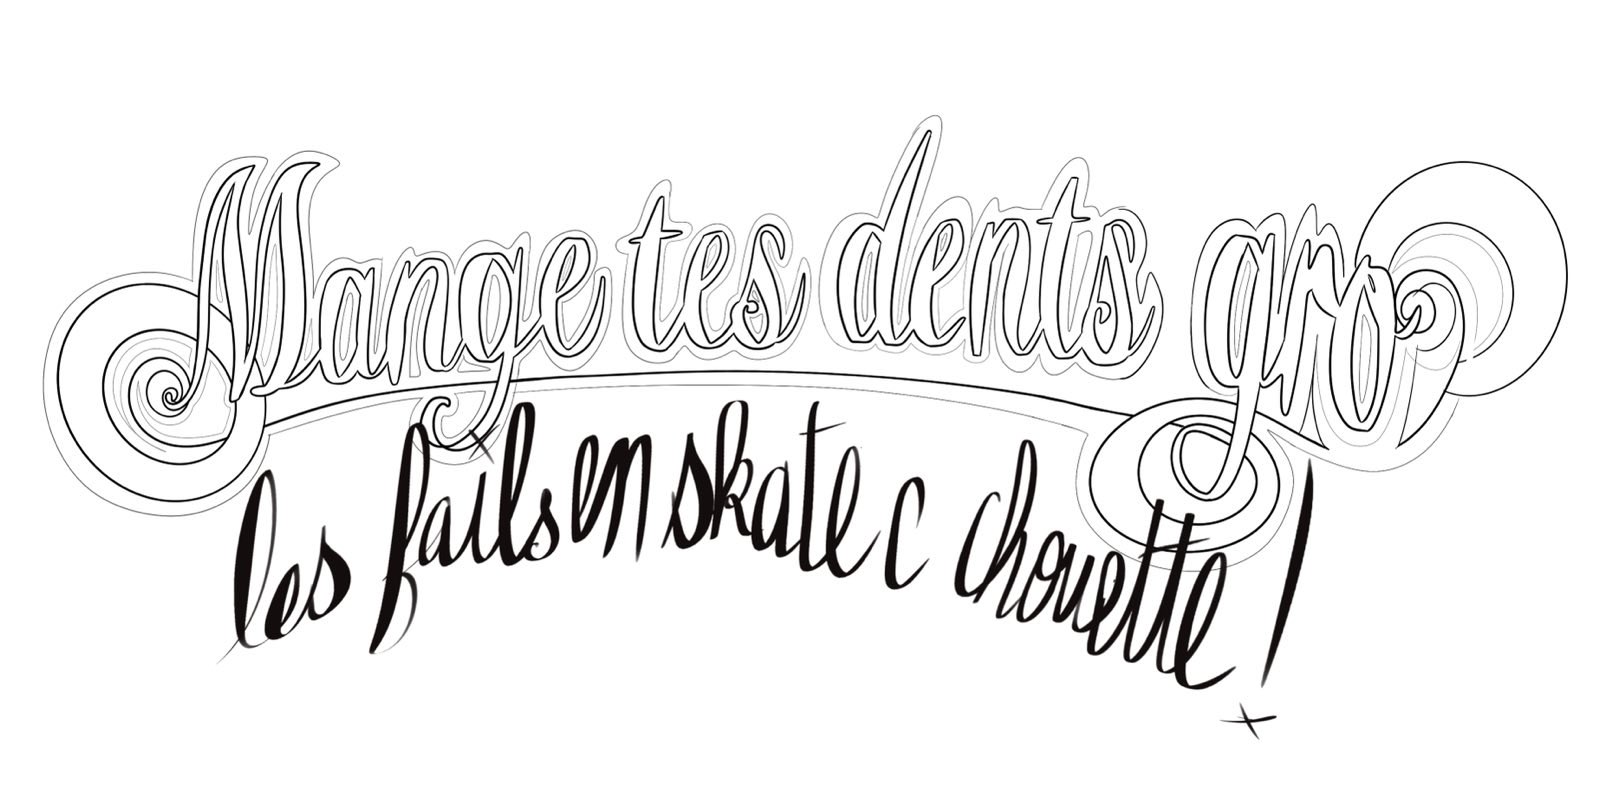 Mange tes dents gro
les fails en skate c chouette !